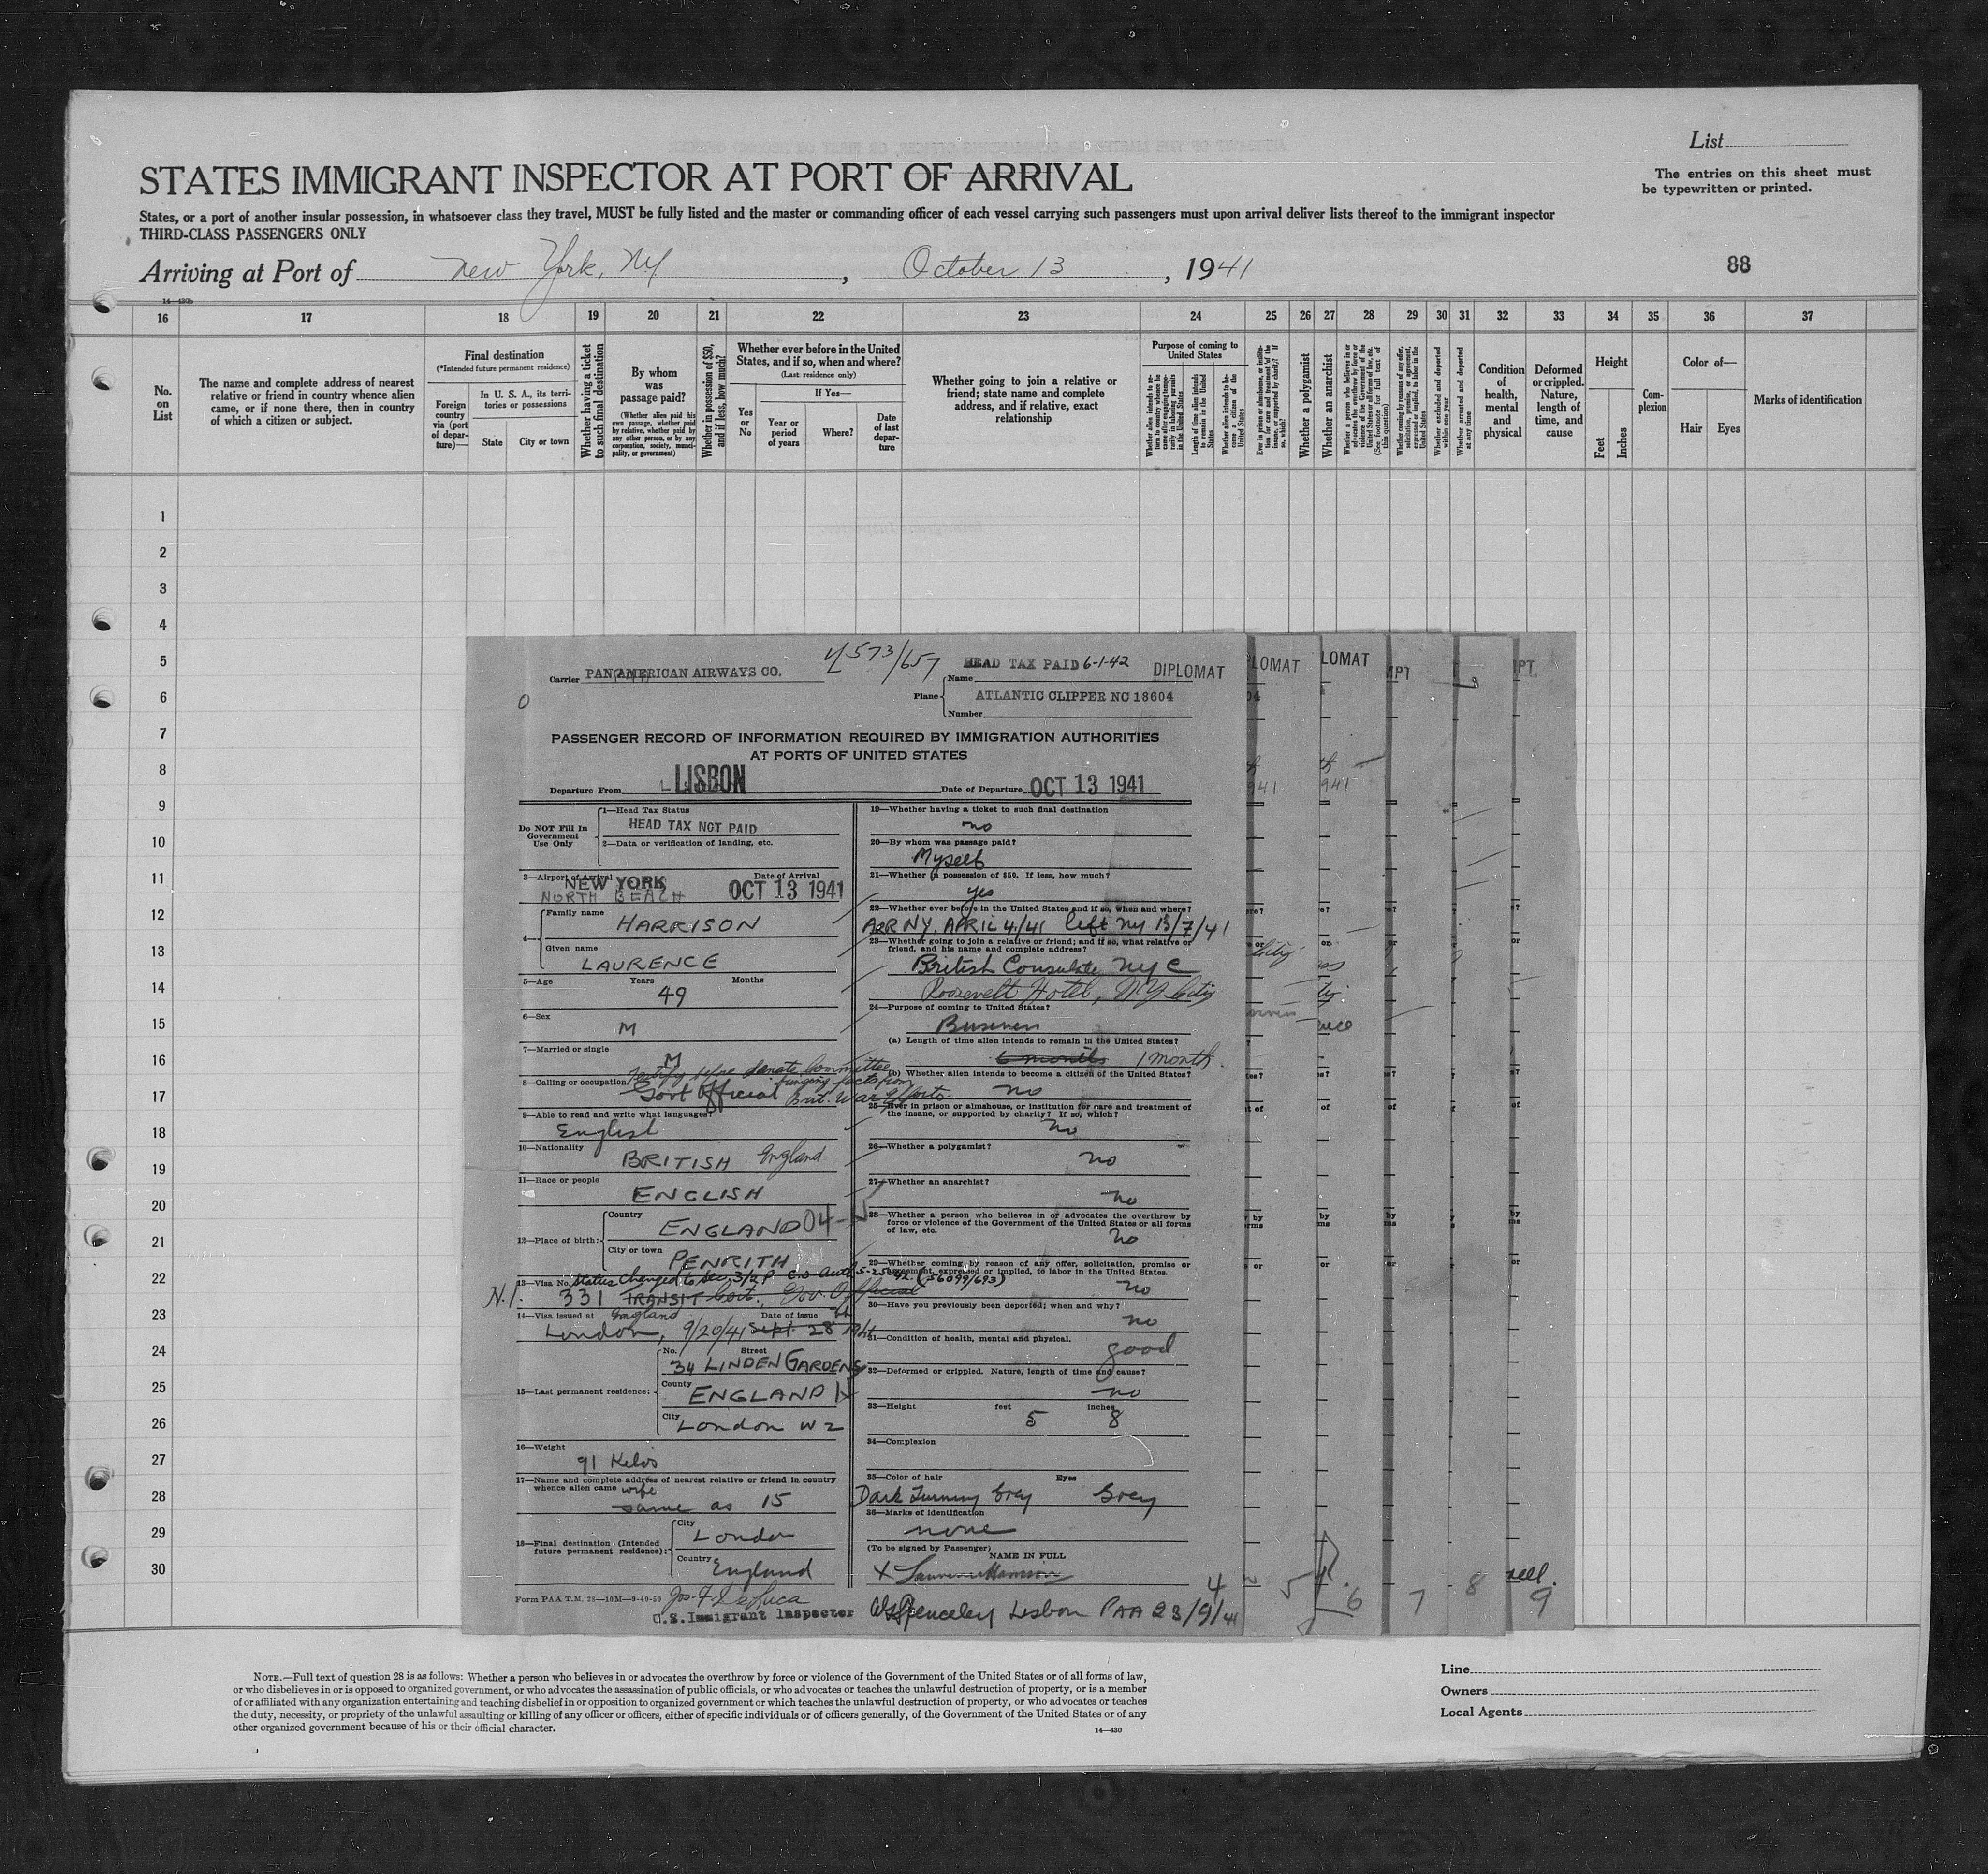 List
STATES IMMIGRANT INSPECTOR AT PORT OF ARRIVAL
The entries on this sheet must
be typewritten or printed.
States, or a port of another insular possession, in whatsoever class they travel, MUST be fully listed and the master or commanding officer of each vessel carrying such passengers must upon arrival deliver lists thereof to the immigrant inspector
THIRD-CLASS PASSENGERS ONLY
Arriving at Port of New York, NY, October 13, 1941
88
14—430b
16 17 18 19 20 21 22 23 24 25 26 27 28 29 30 31 32 33 34 35 36 37
No. on List
The name and complete address of nearest relative or friend in country whence alien came, or if none there, then in country of which a citizen or subject.
Final destination
(*Intended future permanent residence)
Foreign country via (port of departure)—
In U. S. A., its territories or possessions
State
City or town
Whether having a ticket to such final destination
By whom was passage paid?
(Whether alien paid his own passage, whether paid by relative, whether paid by any other person, or by any corporation, society, municipality, or government)
Whether in possession of $50, and if less, how much?
Whether ever before in the United States, and if so, when and where?
(Last residence only)
Yes or No
If Yes—
Year or period of years
Where?
Date of last departure
Whether going to join a relative or friend; state name and complete address, and if relative, exact relationship
Purpose of coming to United States
Length of time alien intends to remain in the United States
Whether alien intends to become a citizen of the United States
Whether a polygamist
Whether an anarchist
Whether excluded and deported within one year
Whether arrested and deported at any time
Condition of health, mental and physical
Deformed or crippled. Nature, length of time, and cause
Height
Feet
Inches
Complexion
Color of—
Hair
Eyes
Marks of identification
1
2
3
4
5
6
7
8
9
10
11
12
13
14
15
16
17
18
19
20
21
22
23
24
25
26
27
28
29
30
4573/657
HEAD TAX PAID 6-1-42
DIPLOMAT
LOMAT
LOMAT
MPT
PT
Carrier PAN AMERICAN AIRWAYS CO.
Name
Plane
ATLANTIC CLIPPER NC 18604
Number
PASSENGER RECORD OF INFORMATION REQUIRED BY IMMIGRATION AUTHORITIES
AT PORTS OF UNITED STATES
Departure From LISBON
Date of Departure OCT 13 1941
Do NOT Fill In
Government
Use Only
1—Head Tax Status
HEAD TAX NOT PAID
2—Data or verification of landing, etc.
3—Airport of Arrival
NEW YORK
NORTH BEACH
Date of Arrival
OCT 13 1941
4— Family name
HARRISON
Given name
LAURENCE
5—Age Years Months
49
6—Sex
M
7—Married or single
M
Testify before Senate Committee
8—Calling or occupation
Govt Official
Brit. War Efforts
9—Able to read and write what languages?
English
10—Nationality
BRITISH England
11—Race or people
ENGLISH
12—Place of birth:
Country
ENGLAND 04-
City or town
PENRITH
Status changed to Sec. 3/2 P C.O. Auth 5-25-42 (56099/693)
13—Visa No.
N.I. 331 TRANSIT Cert. Gov. Official
14—Visa issued at England
Date of issue
London, 9/20/41 Sept. 28
15—Last permanent residence:
No. Street
34 LINDEN GARDENS
County
ENGLAND
City
London W2
16—Weight
91 Kilos
17—Name and complete address of nearest relative or friend in country
whence alien came wife
same as 15
18—Final destination (Intended
future permanent residence):
City
London
Country
England
Form PAA T.M. 25—10M—9-40-50
Jos. F. DeLuca
U.S. Immigrant Inspector
19—Whether having a ticket to such final destination
no
20—By whom was passage paid?
Myself
21—Whether in possession of $50. If less, how much?
yes
22—Whether ever before in the United States and if so, when and where?
ARR NY. APRIL 4/41 left NY 13/7/41
23—Whether going to join a relative or friend; and if so, what relative or
friend, and his name and complete address?
British Consulate, NYC
Roosevelt Hotel, NY City
24—Purpose of coming to United States?
Business
(a) Length of time alien intends to remain in the United States?
6 months 1 month.
(b) Whether alien intends to become a citizen of the United States?
no
25—Ever in prison or almshouse, or institution for care and treatment of
the insane, or supported by charity? If so, which?
no
26—Whether a polygamist?
no
27—Whether an anarchist?
no
28—Whether a person who believes in or advocates the overthrow by
force or violence of the Government of the United States or all forms
of law, etc.
no
29—Whether coming by reason of any offer, solicitation, promise or
agreement, expressed or implied, to labor in the United States.
no
30—Have you previously been deported; when and why?
no
31—Condition of health, mental and physical.
good
32—Deformed or crippled. Nature, length of time and cause?
no
33—Height feet inches
5 8
34—Complexion
35—Color of hair Eyes
Dark Turning Grey Grey
36—Marks of identification
none
(To be signed by Passenger)
NAME IN FULL
X Laurence Harrison
WSpenceley Lisbon PAA 23/9/41
4 5 6 7 8 9
NOTE.—Full text of question 28 is as follows: Whether a person who believes in or advocates the overthrow by force or violence of the Government of the United States or of all forms of law,
or who disbelieves in or is opposed to organized government, or who advocates the assassination of public officials, or who advocates or teaches the unlawful destruction of property, or is a member
of or affiliated with any organization entertaining and teaching disbelief in or opposition to organized government or which teaches the unlawful destruction of property, or who advocates or teaches
the duty, necessity, or propriety of the unlawful assaulting or killing of any officer or officers, either of specific individuals or of officers generally, of the Government of the United States or of any
other organized government because of his or their official character.
14—430
Line
Owners
Local Agents